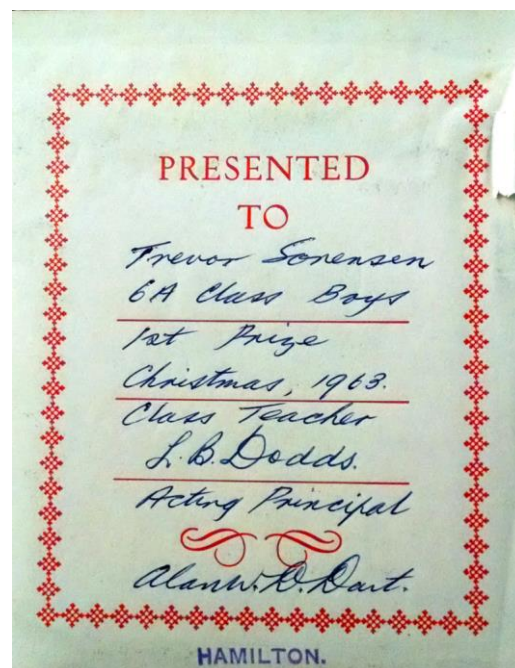 PRESENTED
TO
Trevor Sorensen
6A Class Boys
1st Prize
Christmas, 1963.
Class Teacher
L. B. Dodds.
Acting Principal
Alan W. D. Dart.
HAMILTON.